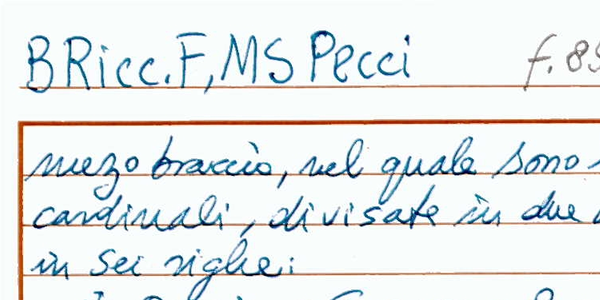 BRicc.F, MS Pecci f. 85
mezo braccio, nel quale sono
cardinali, divisate in due
in sei righe: